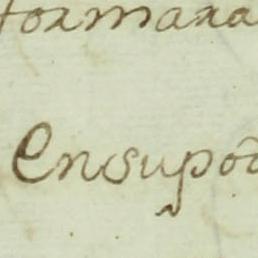 formara
Ensupod